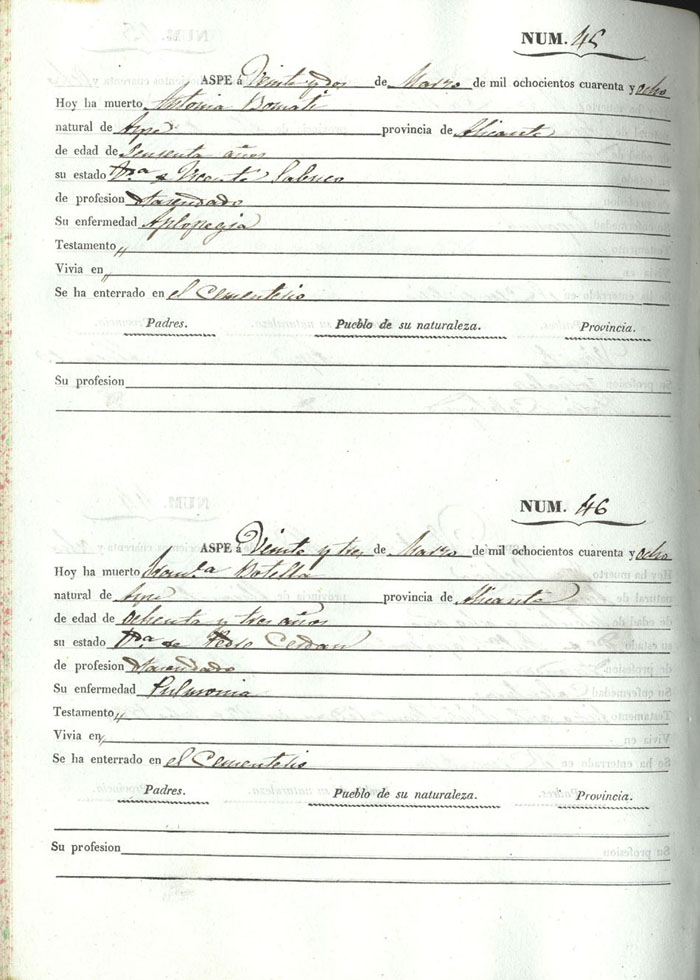 NUM. 45
ASPE á Veinte y dos de Marzo de mil ochocientos cuarenta y ocho
Hoy ha muerto Antonia Bonati
natural de Aspe provincia de Alicante
de edad de sensenta años
su estado V.ᵃ de Vicente
de profesion Hasendado
Su enfermedad Aplopegia
Testamento „
Vivia en „
Se ha enterrado en el Cementerio
Padres. Pueblo de su naturaleza. Provincia.
Su profesion
NUM. 46
ASPE á Veinte y tres de Marzo de mil ochocientos cuarenta y ocho
Hoy ha muerto Botella
natural de Aspe provincia de Alicante
de edad de ochenta y tres años
su estado V.ᵃ de Pedro Cerdan
de profesion Hasendado
Su enfermedad Pulmonia
Testamento „
Vivia en „
Se ha enterrado en el Cementerio
Padres. Pueblo de su naturaleza. Provincia.
Su profesion